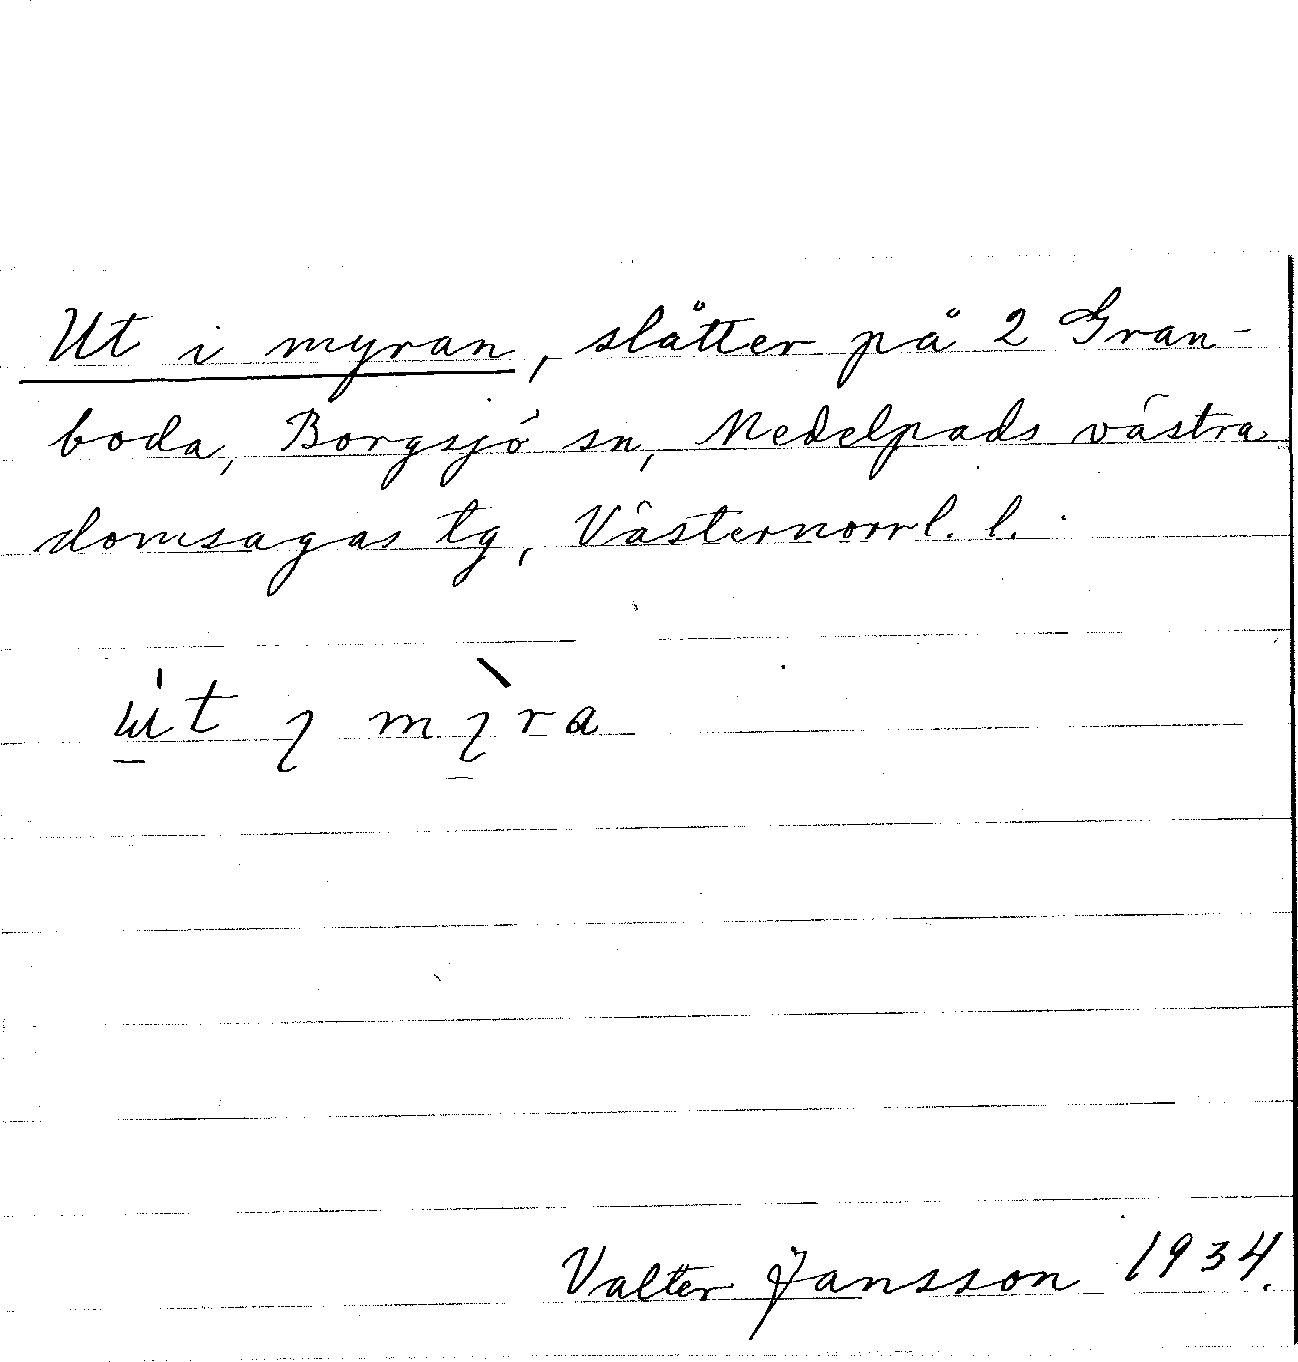 Ut i myran, slåtter på 2 Gran-
boda, Borgsjö sn, Medelpads västra
domsagas tg, Västernorrl. l.
út ı mı̀ra
Valter Jansson 1934.